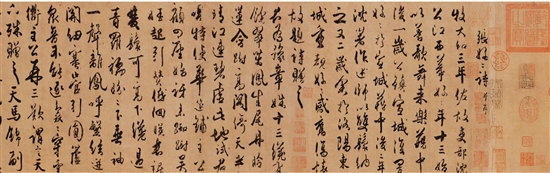 張好好詩并序
牧大和三年佐故吏部沈
公江西幕好好年十三始
以善歌舞來樂籍中
後一歲公鎮宣城復置
好好於宣城籍中後二歲
沈著作述師以雙鬟納
之又二歲余於洛陽東
城重覩好好感舊傷
懷故題詩贈之
君爲豫章姝十三纔有
餘翠茁鳳生尾丹葉
蓮含跗高閣倚天半
晴江連碧虛此地試君
唱特使華筵鋪主公
顧四座始訝來踟躕吳
娃起引贊低徊映長
裾雙鬟可高下纔過
青羅襦盼盼乍垂袖
一聲離鳳呼繁絃迸
關紐塞管引圓蘆
衆音不能逐裊裊穿雲
衢主公再三歎謂言天
下殊贈之天馬錦副